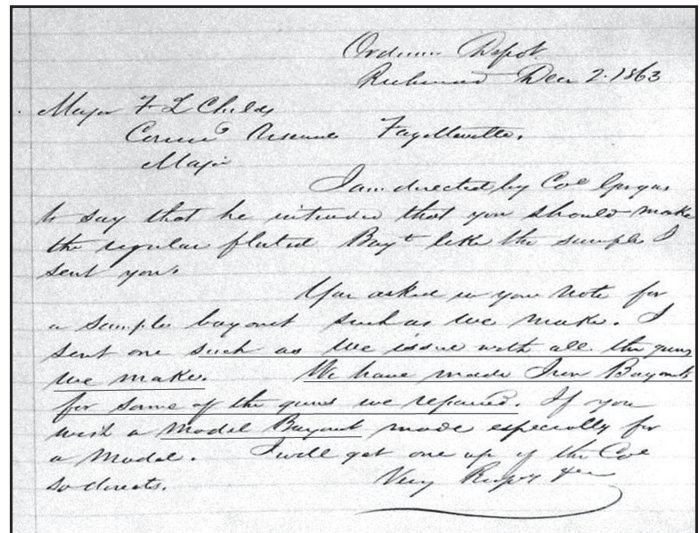 Ordnance Depot
Richmond Dec 2. 1863
Major F L Childs
Comdg Arsenal Fayetteville.
Major
I am directed by Col Gorgas
to say that he intended that you should make
the regular fluted Bayt like the sample I
sent you.
You asked in your note for
a sample bayonet such as we make. I
sent one such as we issue with all the guns
we make. We have made Iron Bayonets
for some of the guns we repaired. If you
wish a Model Bayonet made especially for
a Model. I will get one up if the Col
so directs.
Very Respy &c